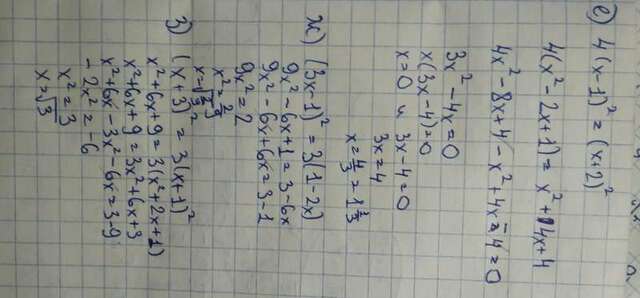 е) 4(x-1)² = (x+2)²
4(x² - 2x+1) = x² + 4x+4
4x² - 8x+4 - x² + 4x - 4 = 0
3x² - 4x = 0
x(3x-4) = 0
x = 0 и 3x-4 = 0
3x = 4
x = 4/3 = 1 1/3
ж) (3x-1)² = 3(1-2x)
9x² - 6x+1 = 3 - 6x
9x² - 6x+6x = 3 - 1
9x² = 2
x² = 2/9
x = √2/9
з) (x+3)² = 3(x+1)²
x² + 6x + 9 = 3(x² + 2x + 1)
x² + 6x + 9 = 3x² + 6x + 3
x² + 6x - 3x² - 6x = 3 - 9
- 2x² = - 6
x² = 3
x = √3